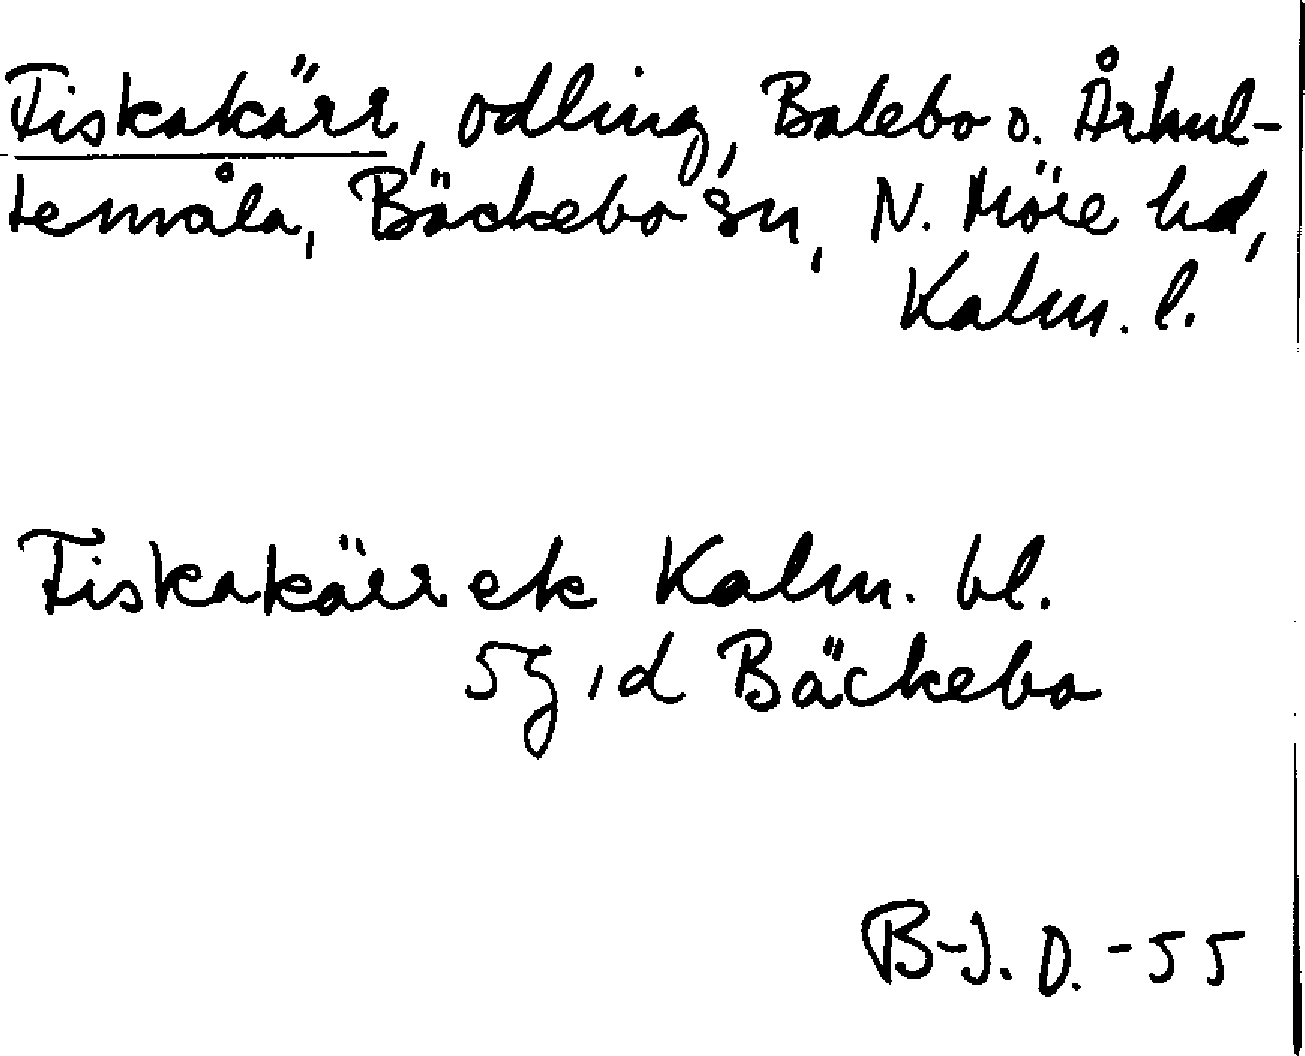 Fiskakärr, odling, Balebo o. Århul-
temåla, Bäckebo sn, N. Möre hd,
Kalm. l.
Fiskakärr ek Kalm. bl.
5g, d Bäckebo
B-J. D. -55